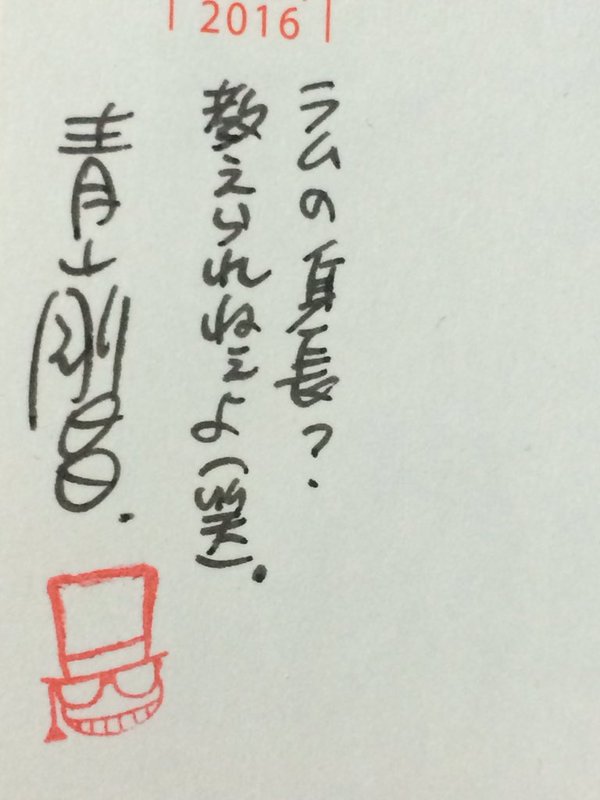 2016
ラムの身長?
教えられねぇよ(笑).
青山剛昌.